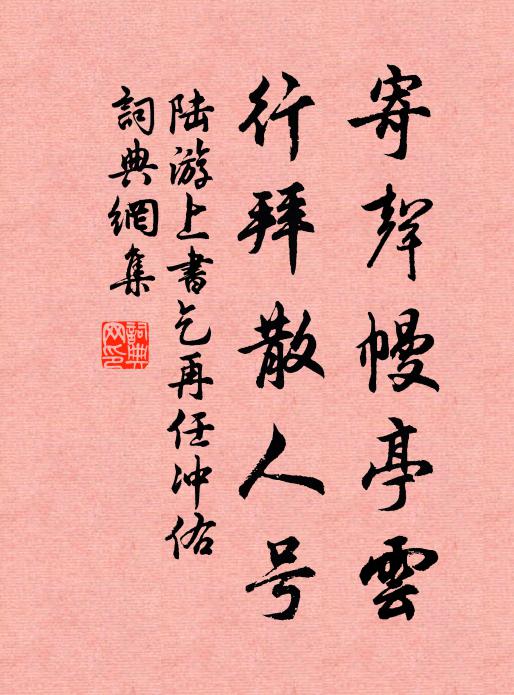 寄聲幔亭雲
行拜散人号
陆游上書乞再任冲佑
詞典網集
詞典網印